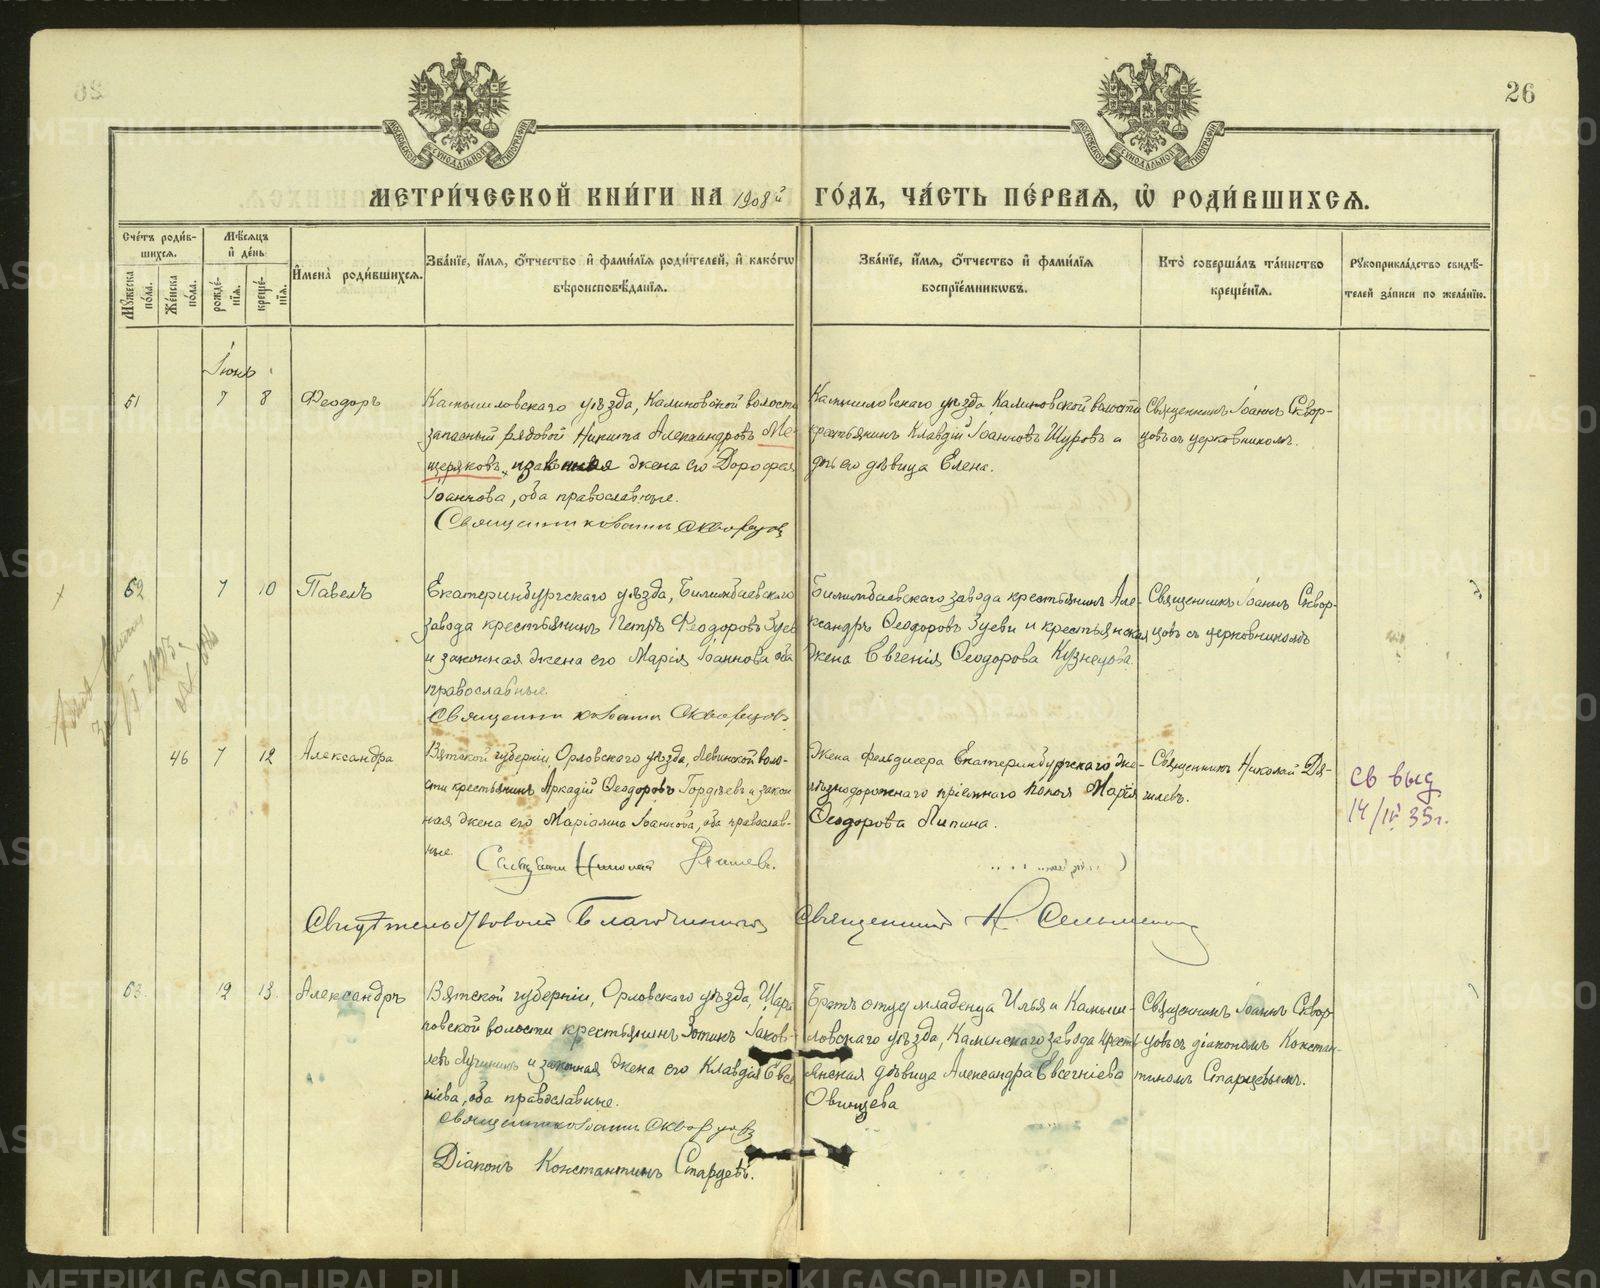 26
МОСКОВСКОЙ СѴНОДАЛЬНОЙ ТИПОГРАФІИ
МОСКОВСКОЙ СѴНОДАЛЬНОЙ ТИПОГРАФІИ
МЕТРИ́ЧЕСКОЙ КНИ́ГИ НА 1908й ГО́ДЪ, ЧА́СТЬ ПЕ́РВАЯ, Ѡ РОДИ́ВШИХСЯ.
Сче́тъ роди́в-
шихся.
Мѣ́сяцъ
и де́нь
Му́жеска по́ла.
Же́нска по́ла.
рожде́-нія.
креще́-нія.
Имена̀ роди́вшихся.
Зва́ніе, и́мя, о́тчество и фами́лія роди́телей, и како́гѡ
вѣроисповѣ́данія.
Зва́ніе, и́мя, о́тчество и фами́лія
воспріе́мниковъ.
Кто̀ соверша́лъ та́инство
креще́нія.
Рукоприкла́дство свидѣ́-
телей за́писи по жела́нію.
Іюнь
61 7 8 Ѳеодоръ
Камышловскаго уѣзда, Калиновской волости
запасный рядовой Никита Александровъ Ме-
щеряковъ, и законная жена его Дорофея
Іоаннова, оба православные.
Священникъ Іоаннъ Скворцовъ
Камышловскаго уѣзда Калиновской волости
крестьянинъ Клавдій Іоанновъ Щуровъ и
дочь его дѣвица Елена.
Священникъ Іоаннъ Сквор-
цовъ съ церковникомъ.
62 7 10 Павелъ
Екатеринбургскаго уѣзда, Билимбаевскаго
завода крестьянинъ Петръ Ѳеодоровъ Зуевъ
и законная жена его Марія Іоаннова оба
православные.
Священникъ Іоаннъ Скворцовъ
Билимбаевскаго завода крестьянинъ Але-
ксандръ Ѳеодоровъ Зуевъ и крестьянская
жена Евгенія Ѳеодорова Кузнецова.
Священникъ Іоаннъ Сквор-
цовъ съ церковникомъ
46 7 12 Александра
Вятской губерніи, Орловскаго уѣзда, Левинской воло-
сти крестьянинъ Аркадій Ѳеодоровъ Гордѣевъ и закон
ная жена его Маріамна Іоаннова, оба православ-
ные.
Священникъ Николай Дягилевъ.
Жена фельдшера Екатеринбургскаго же-
лѣзнодорожнаго пріемнаго покоя Марія
Ѳеодорова Липина.
Священникъ Николай Дя-
гилевъ.
св выд
14/IV 35г.
Свидѣтельствовалъ Благочинный Священникъ Н.
63 12 13 Александръ
Вятской губерніи, Орловскаго уѣзда, Шара
повской волости крестьянинъ Зотикъ Іаков-
левъ Лучининъ и законная жена его Клавдія Евсе
ніева, оба православные.
Священникъ Іоаннъ Скворцовъ
Діаконъ Константинъ Старцевъ.
Братъ отцу младенца Илья и Камыш-
ловскаго уѣзда, Каменскаго завода кресть
янская дѣвица Александра Евсегніева
Овинцева
Священникъ Іоаннъ Сквор
цовъ съ діакономъ Констан-
тиномъ Старцевымъ.
METRIKI.GASO-URAL.RU